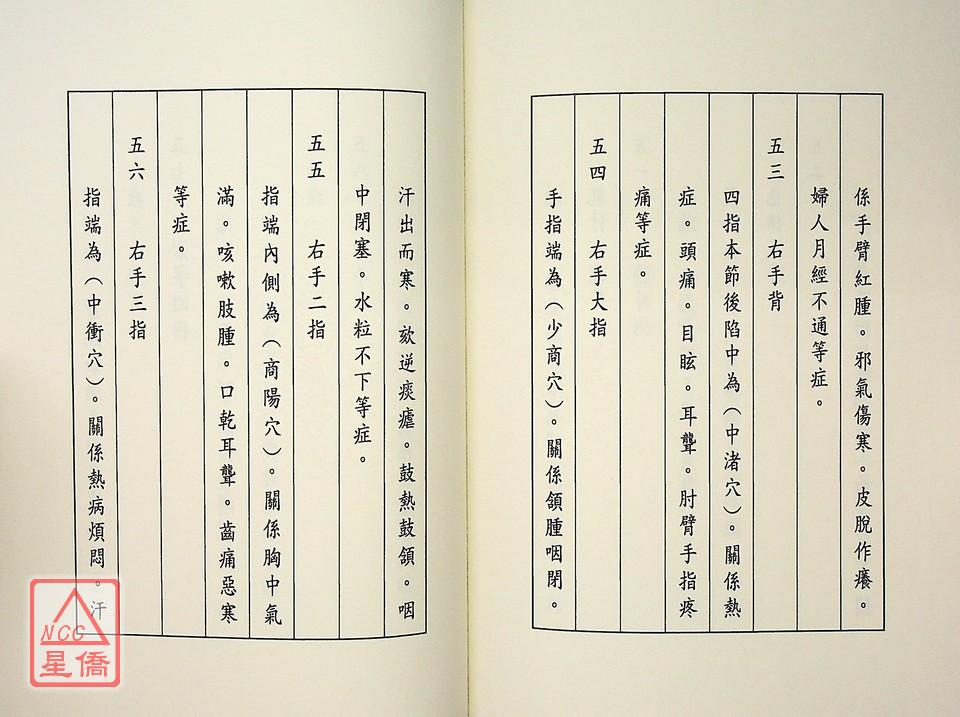 係手臂紅腫。邪氣傷寒。皮脫作癢。
婦人月經不通等症。
五三 右手背
四指本節後陷中為(中渚穴)。關係熱
症。頭痛。目眩。耳聾。肘臂手指疼
痛等症。
五四 右手大指
手指端為(少商穴)。關係頷腫咽閉。
汗出而寒。欬逆痰瘧。鼓熱鼓頷。咽
中閉塞。水粒不下等症。
五五 右手二指
指端內側為(商陽穴)。關係胸中氣
滿。咳嗽肢腫。口乾耳聾。齒痛惡寒
等症。
五六 右手三指
指端為(中衝穴)。關係熱病煩悶。汗
NCC
星僑